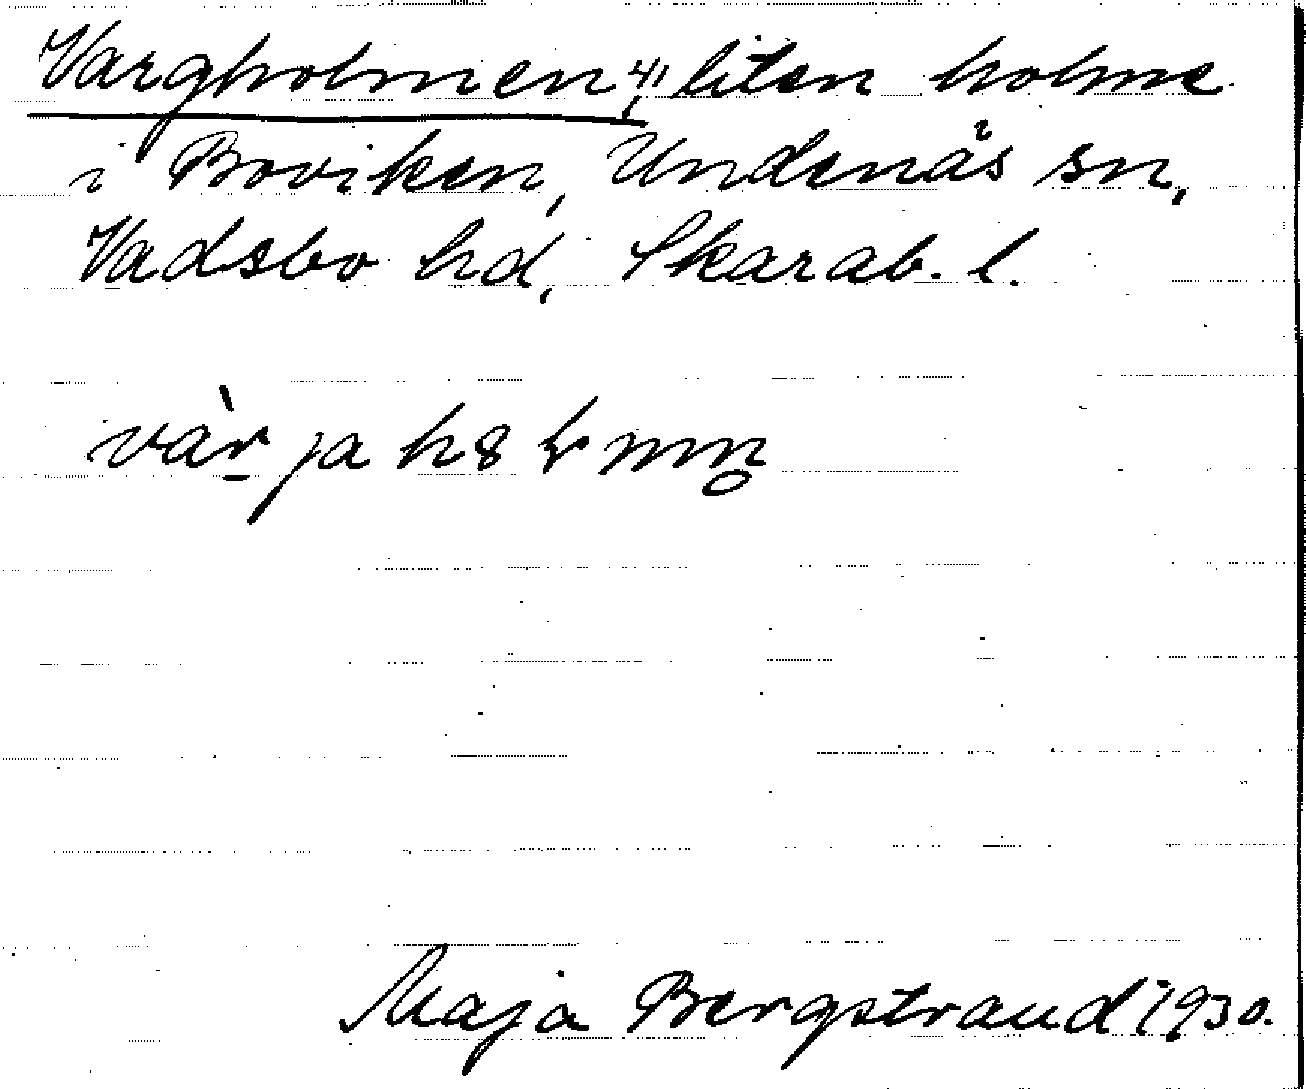 Vargholmen, 41 liten holme
i Boviken, Undenäs sn,
Vadsbo hd, Skarab. l.
Maja Bergstrand 1930.